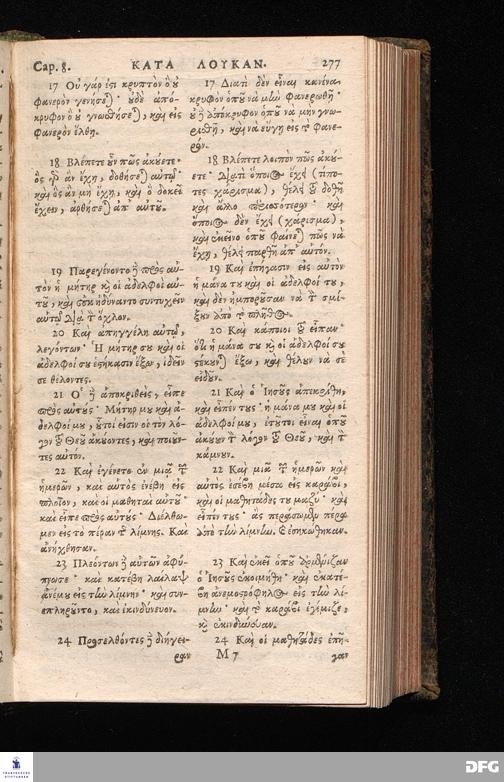 Cap. 8. ΚΑΤΑ ΛΟΥΚΑΝ. 277
17 Οὐ γάρ ἐςι κρυπτὸν ὃ οὐ
φανερὸν γενήσε), οὐδὲ ἀπό-
κρυφον ὃ οὐ γνωσθήσε), καὶ εἰς
φανερὸν ἔλθῃ.
18 Βλέπετε οὖν πῶς ἀκούετε·
ὃς γὰρ ἂν ἔχῃ, δοθήσε) αὐτῷ·
καὶ ὃς ἂν μὴ ἔχῃ, καὶ ὃ δοκεῖ
ἔχειν, ἀρθήσε) ἀπ' αὐτοῦ.
19 Παρεγένοντο δὲ πρὸς αὐ-
τὸν ἡ μήτηρ καὶ οἱ ἀδελφοὶ αὐ-
τοῦ, καὶ οὐκ ἠδύναντο συντυχεῖν
αὐτῷ διὰ τὸν ὄχλον.
20 Καὶ ἀπηγγέλη αὐτῷ,
λεγόντων· Ἡ μήτηρ σου καὶ οἱ
ἀδελφοί σου ἑςήκασιν ἔξω, ἰδεῖν
σε θέλοντες.
21 Ὁ δὲ ἀποκριθεὶς, εἶπε
πρὸς αὐτούς· Μήτηρ μου καὶ ἀ-
δελφοί μου, οὗτοί εἰσιν οἱ τὸν λό-
γον τοῦ Θεοῦ ἀκούοντες, καὶ ποιοῦν-
τες αὐτόν.
22 Καὶ ἐγένετο ἐν μιᾷ τῶν
ἡμερῶν, καὶ αὐτὸς ἐνέβη εἰς
πλοῖον, καὶ οἱ μαθηταὶ αὐτοῦ·
καὶ εἶπε πρὸς αὐτούς· Διέλθω-
μεν εἰς τὸ πέραν τῆς λίμνης. Καὶ
ἀνήχθησαν.
23 Πλεόντων δὲ αὐτῶν ἀφύ-
πνωσε· καὶ κατέβη λαῖλαψ
ἀνέμου εἰς τὴν λίμνην· καὶ συν-
επληροῦντο, καὶ ἐκινδύνευον.
24 Προσελθόντες δὲ διήγει-
ραν
17 Διατὶ δὲν εἶναι κανένα
κρυφὸν ὁποῦ νὰ μὴν φανερωθῇ·
οὐδὲ ἀπόκρυφον ὁποῦ νὰ μὴν γνω-
ρισθῇ, καὶ νὰ εὔγῃ εἰς τὸ φανε-
ρόν.
18 Βλέπετε λοιπὸν πῶς ἀκού-
ετε· διατὶ ὁποῖος ἔχει (τίπο-
τες χάρισμα), θέλει τοῦ δοθῇ
καὶ ἄλλο περισσότερον· καὶ
ὁποῖος δὲν ἔχει (χάρισμα),
καὶ ἐκεῖνο ὁποῦ φαίνε) πῶς νὰ
ἔχῃ, θέλει παρθῆ ἀπ' αὐτόν.
19 Καὶ ἐπήγασιν εἰς αὐτὸν
ἡ μάνα του καὶ οἱ ἀδελφοί του,
καὶ δὲν ἠμποροῦσαν νὰ τὸν σμί-
ξουν ἀπὸ τὸ πλῆθος.
20 Καὶ κάποιοι τοῦ εἶπαν
ὅτι ἡ μάνα σου καὶ οἱ ἀδελφοί σου
ςέκουν) ἔξω, καὶ θέλουν νὰ σὲ
εἰδοῦν.
21 Καὶ ὁ Ἰησοῦς ἀπεκρίθη,
καὶ εἶπέν τους· ἡ μάνα μου καὶ οἱ
ἀδελφοί μου, ἐτοῦτοι εἶναι ὁποῦ
ἀκούουν τὸν λόγον τοῦ Θεοῦ, καὶ τὸν
κάμνουν.
22 Καὶ μιᾷ τῶν ἡμερῶν καὶ
αὐτὸς ἐσέβη μέσα εἰς καράβι,
καὶ οἱ μαθητάδες του μαζὺ· καὶ
εἶπέν τους· ἂς περάσωμεν πέρα
ἀπὸ τὴν λίμνην. Ἐσηκωθηκαν.
23 Καὶ ἐκεῖ ὁποῦ ἀρμένιζαν
ὁ Ἰησοῦς ἐκοιμήθη· καὶ ἐκατέ-
βη ἀνεμοςρόφηλος εἰς τὴν λί-
μνην· καὶ τὸ καράβι ἐγέμιζε,
καὶ ἐκινδύνευαν.
24 Καὶ οἱ μαθητάδες ἐπή-
M 7 γαν
FRANCKESCHE STIFTUNGEN
DFG